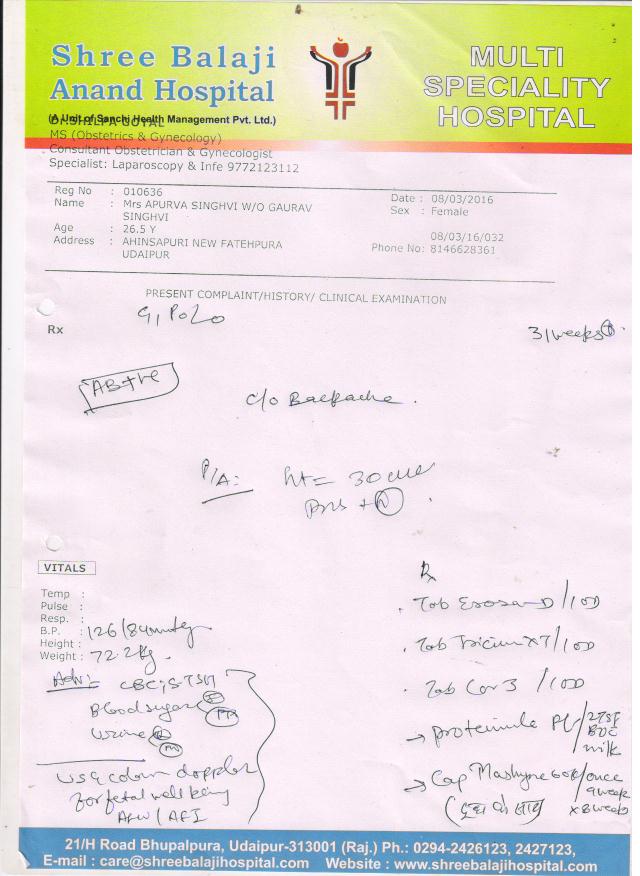 Shree Balaji
Anand Hospital
(A Unit of Sanchi Health Management Pvt. Ltd.)
MULTI
SPECIALITY
HOSPITAL
Dr.SHILPA GOYAL
MS (Obstetrics & Gynecology)
Consultant Obstetrician & Gynecologist
Specialist: Laparoscopy & Infe 9772123112
Reg No : 010636
Name : Mrs APURVA SINGHVI W/O GAURAV
SINGHVI
Age : 26.5 Y
Address : AHINSAPURI NEW FATEHPURA
UDAIPUR
Date : 08/03/2016
Sex : Female
08/03/16/032
Phone No: 8146628361
PRESENT COMPLAINT/HISTORY/ CLINICAL EXAMINATION
G1P0L0
Rx
31weeks
AB+ve
c/o Backache.
P/A: ht = 30
VITALS
Temp :
Pulse :
Resp. :
B.P. : 126/84mmHg
Height :
Weight : 72.2kg.
Adv:- CBC, S.TSH
Blood sugar F PP
Urine
USG colour doppler
for fetal well being
AFI
Rx
Tab D/1OD
Tab XT/1OD
Tab Cor 3 /1OD
→ PL/2TSF
BD C
milk
→ Cap 60K/once
a week
x 8 weeks
(दूध के साथ)
21/H Road Bhupalpura, Udaipur-313001 (Raj.) Ph.: 0294-2426123, 2427123,
E-mail : care@shreebalajihospital.com Website : www.shreebalajihospital.com